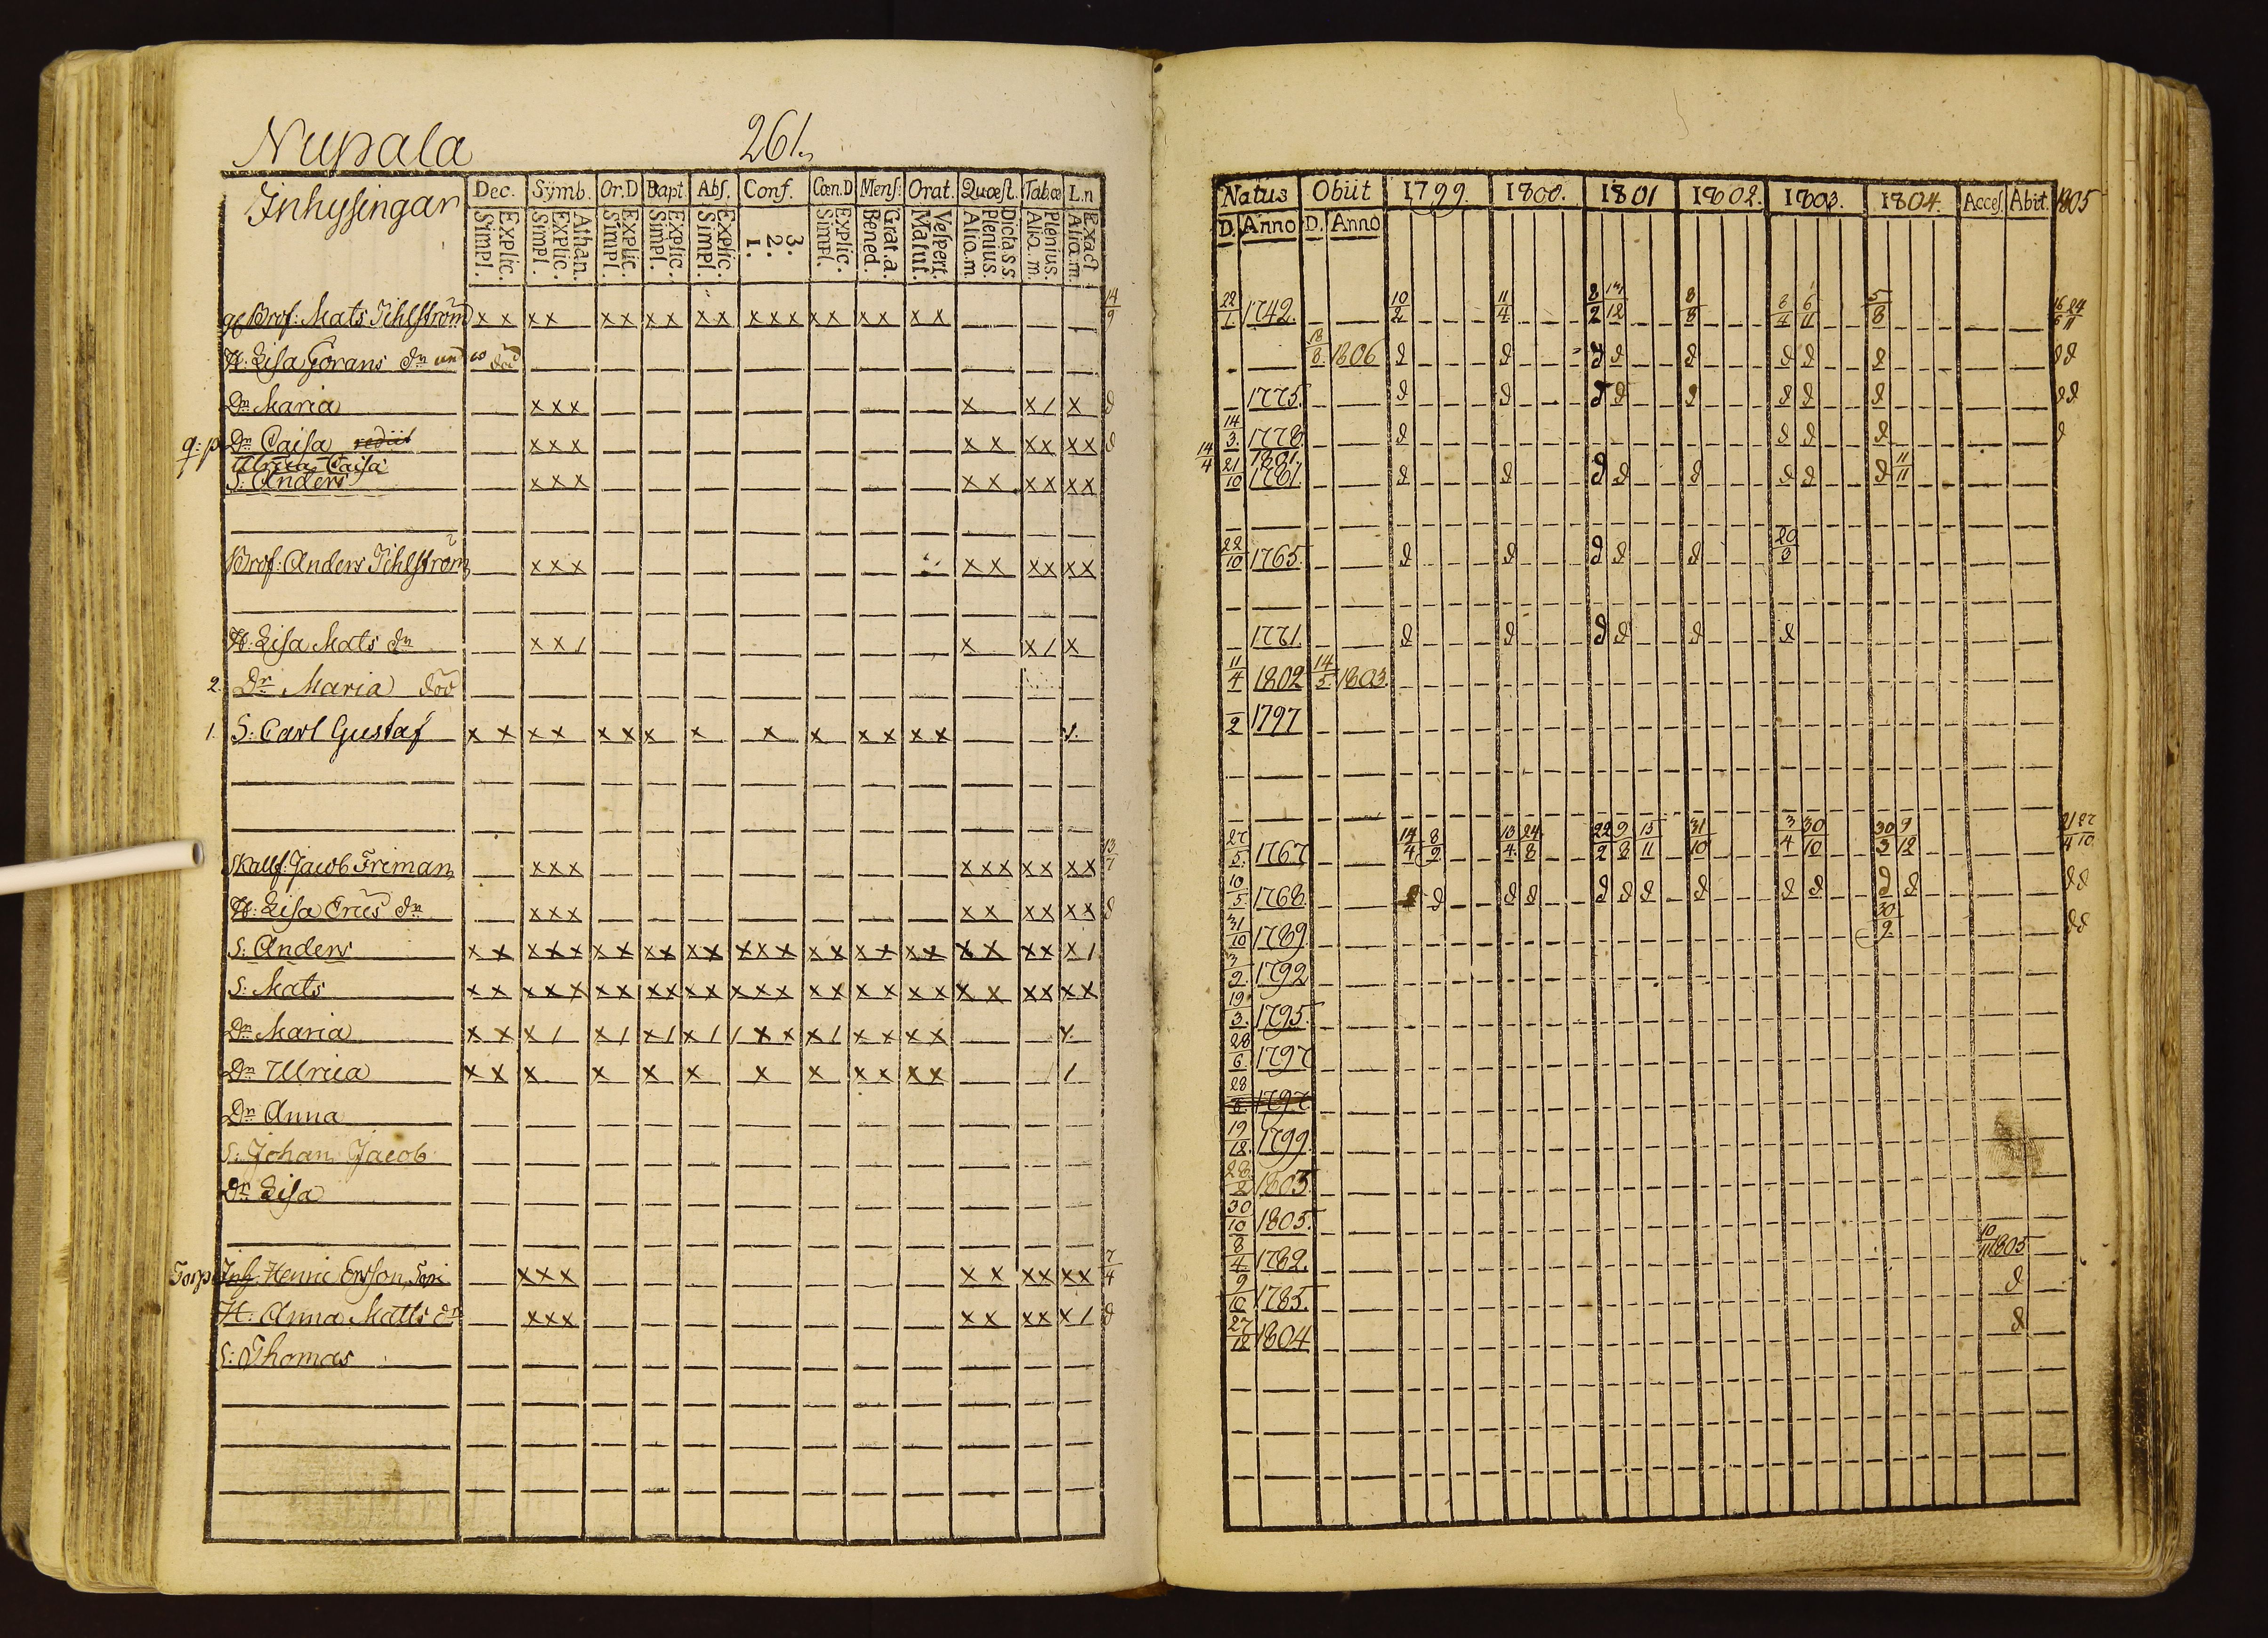 Nupala 261.
Inhysingar
Dec. Symb. Or.D Bapt. Abs. Conf. Cœn.D Mens: Orat. Quæst. Tab.œ L.n
Explic. Simpl.
Athan. Explic. Simpl.
Explic. Simpl.
Explic. Simpl.
Explic. Simpl.
3. 2. 1.
Explic. Simpl.
Grat.a. Bened.
Vespert. Matut.
Dicta.s.s. Plenius. Aliq.m
Plenius. Aliq.m.
Exact Aliq.m.
Prof: Mats Tihlström x x x x x x x x x x x x x x x x x x x 14/9
H: Lisa Görans dr död
Dr Maria x x x x x / x d
q: p Dr Caisa rediit x x x x x x x x x d
Ulrica Caisa
S: Anders x x x x x x x x x
Prof: Anders Tihlström x x x x x x x x x
H: Lisa Mats dr x x / x x / x
2. Dr Maria död
1. S: Carl Gustaf x x x x x x x x x x x x x x
Skallf: Jacob Friman x x x x x x x x x x 13/7
H: Lisa Erics dr x x x x x x x x x d
S: Anders x x x x x x x x x x x x x x x x x x x x x x x x x x /
S: Mats x x x x x x x x x x x x x x x x x x x x x x x x x x x
Dr Maria x x x / x / x / x / / x x x / x x x x
Dr Ulrica x x x x x x x x x x x x /
Dr Anna
S: Johan Jacob
Dr Lisa
Torp Inh. Henric Ersson, x x x x x x x x x 7/4
H: Anna Matts dr x x x x x x x x / d
S: Thomas
Natus Obiit 1799. 1800. 1801 1802. 1803. 1804. Acces. Abit. 1805
D. Anno D. Anno
22/1 1742 10/2 11/4 8/2 8/8 8/4 6/11 5/8 24/11
18/8 1806 d d d d d d d d d d
1775. d d d d d d d d d d
14/3 1778 d d d d d
14/4 1801.
21/10 1781. d d d d d d d d 11/11
22/10 1765. d d d d d
1771. d d d d d d
11/4 1802 14/5 1803.
/2 1797
27/5 1767 14/4 8/9 13/4 24/8 22/2 9/8 15/11 31/10 3/4 30/10 30/3 9/12 21/4 22/10
10/5 1768. d d d d d d d d d d d d d d
31/10 1789. 30/9 d d
3/2 1792
19/3 1795.
28/6 1797
28 1797
19/12 1799.
28/2 1803.
30/10 1805.
8/4 1782. 10/11 1805
9/10 1785. d
27/12 1804 d